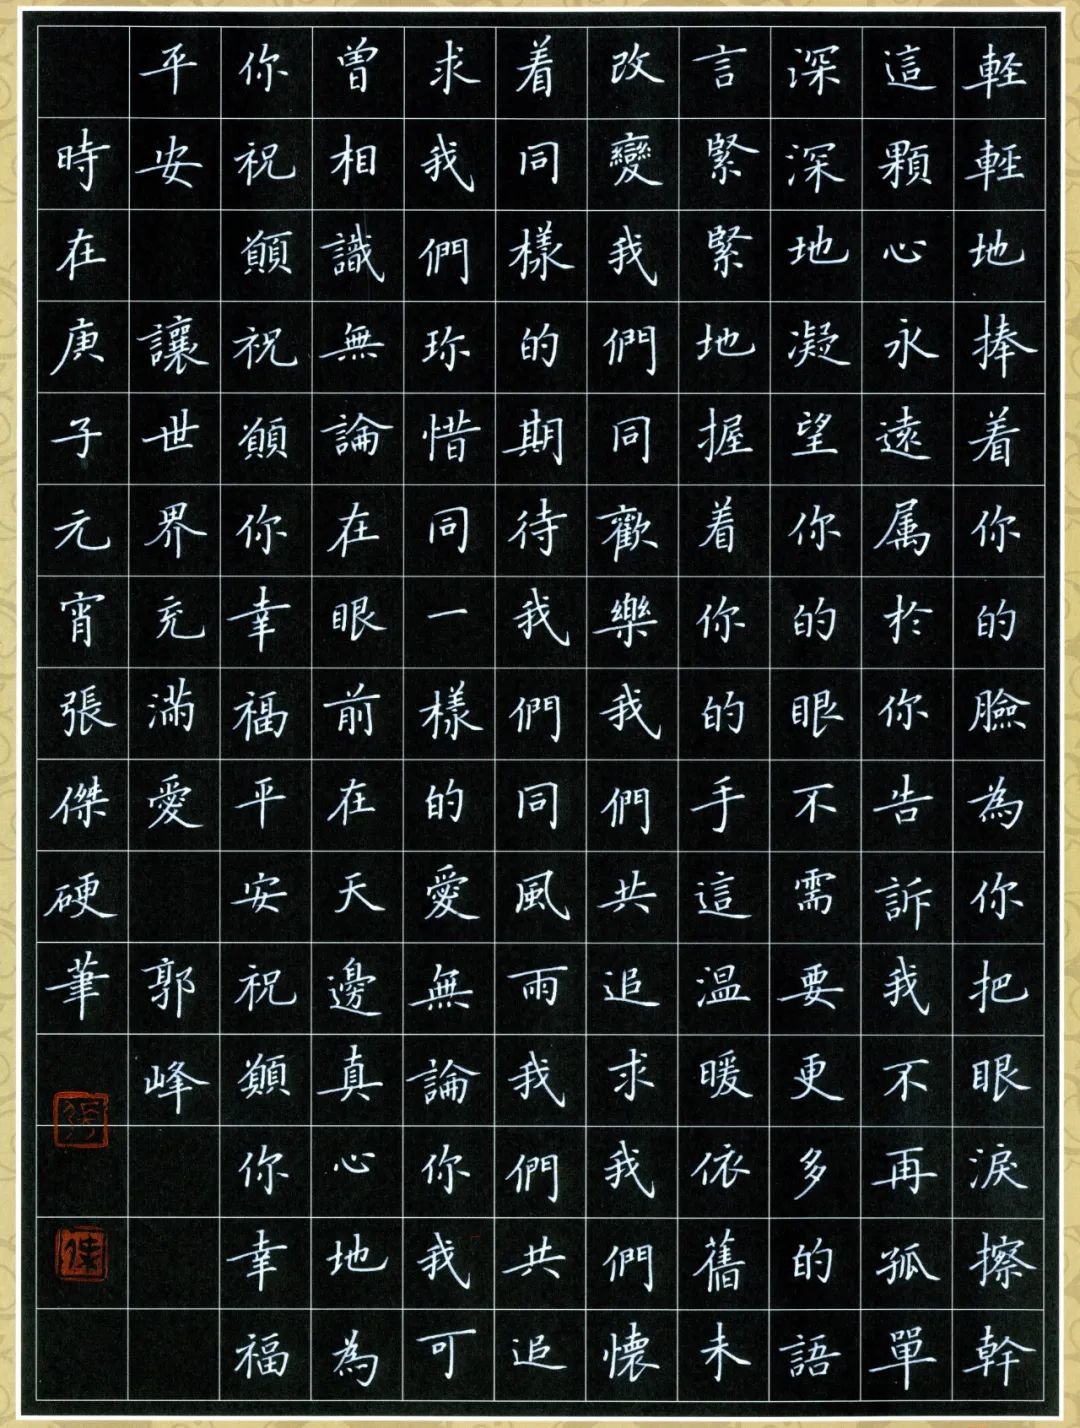 軽輕地捧着你的臉為你把眼淚擦幹
這顆心永遠属於你告訴我不再孤單
深深地凝望你的眼不需要更多的語
言緊緊地握着你的手這温暖依舊未
改變我們同歡樂我們共追求我們懷
着同樣的期待我們同風雨我們共追
求我們珎惜同一樣的愛無論你我可
曽相識無論在眼前在天邊真心地為
你祝願祝願你幸福平安祝願你幸福
平安 讓世界充滿愛 郭峰
時在庚子元宵張傑硬筆